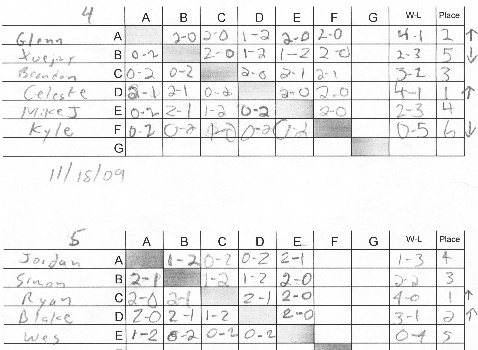 4 A B C D E F G W-L Place
Glenn A 2-0 2-0 1-2 2-0 2-0 4-1 2 ↑
B 0-2 2-0 1-2 1-2 2-0 2-3 5 ↓
Brandon C 0-2 0-2 2-0 2-1 2-1 3-2 3
Celeste D 2-1 2-1 0-2 2-0 2-0 4-1 1 ↑
Mike J E 0-2 2-1 1-2 0-2 2-0 2-3 4
Kyle F 0-2 0-2 0-2 1-2 0-5 6 ↓
G
11/18/09
5 A B C D E F G W-L Place
Jordan A 1-2 0-2 0-2 2-1 1-3 4
Simon B 2-1 1-2 1-2 2-0 2-2 3
Ryan C 2-0 2-1 2-1 2-0 4-0 1 ↑
Blake D 2-0 2-1 1-2 2-0 3-1 2 ↑
Wes E 1-2 0-2 0-2 0-2 0-4 5